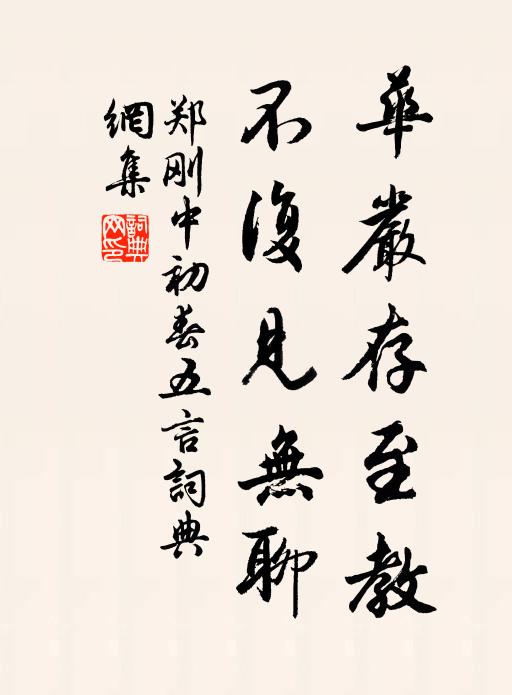 華嚴存至教
不復見無聊
郑刚中初春五言詞典
網集
詞典網印